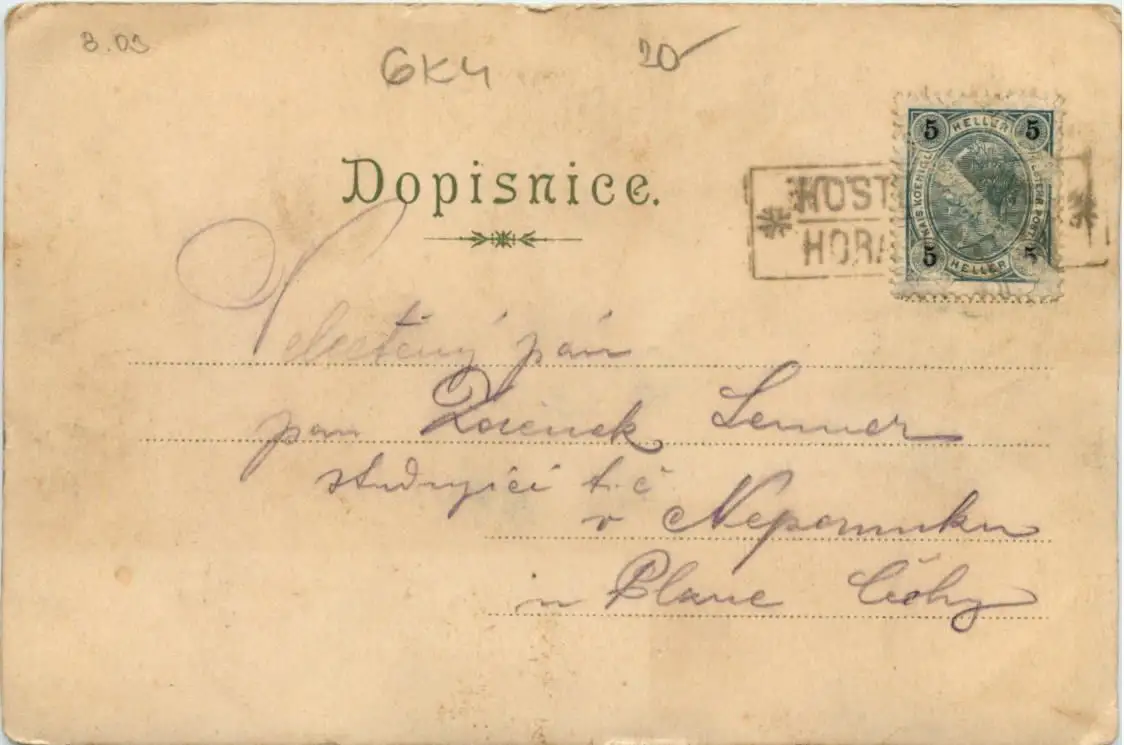 8.03
6K4
20
Dopisnice.
KOST
HORA
5 HELLER 5
5 HELLER 5
Velectěný pán
pan Zdeněk Lenner
studující t. č.
v Nepomuku
u Plane Čéhy